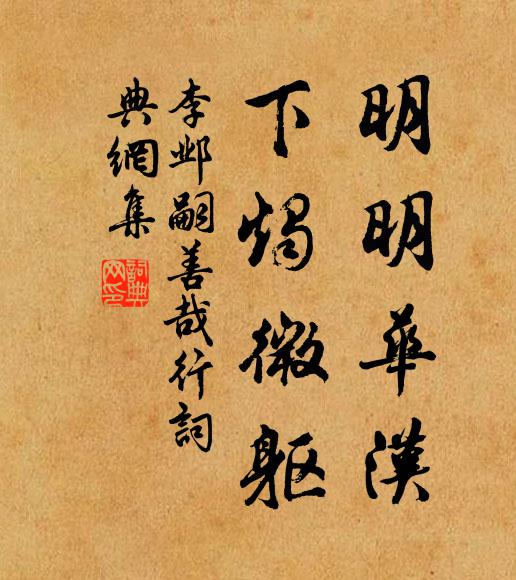 明明華漢
下燭微軀
李鄴嗣善哉行詞
典網集
詞典網印